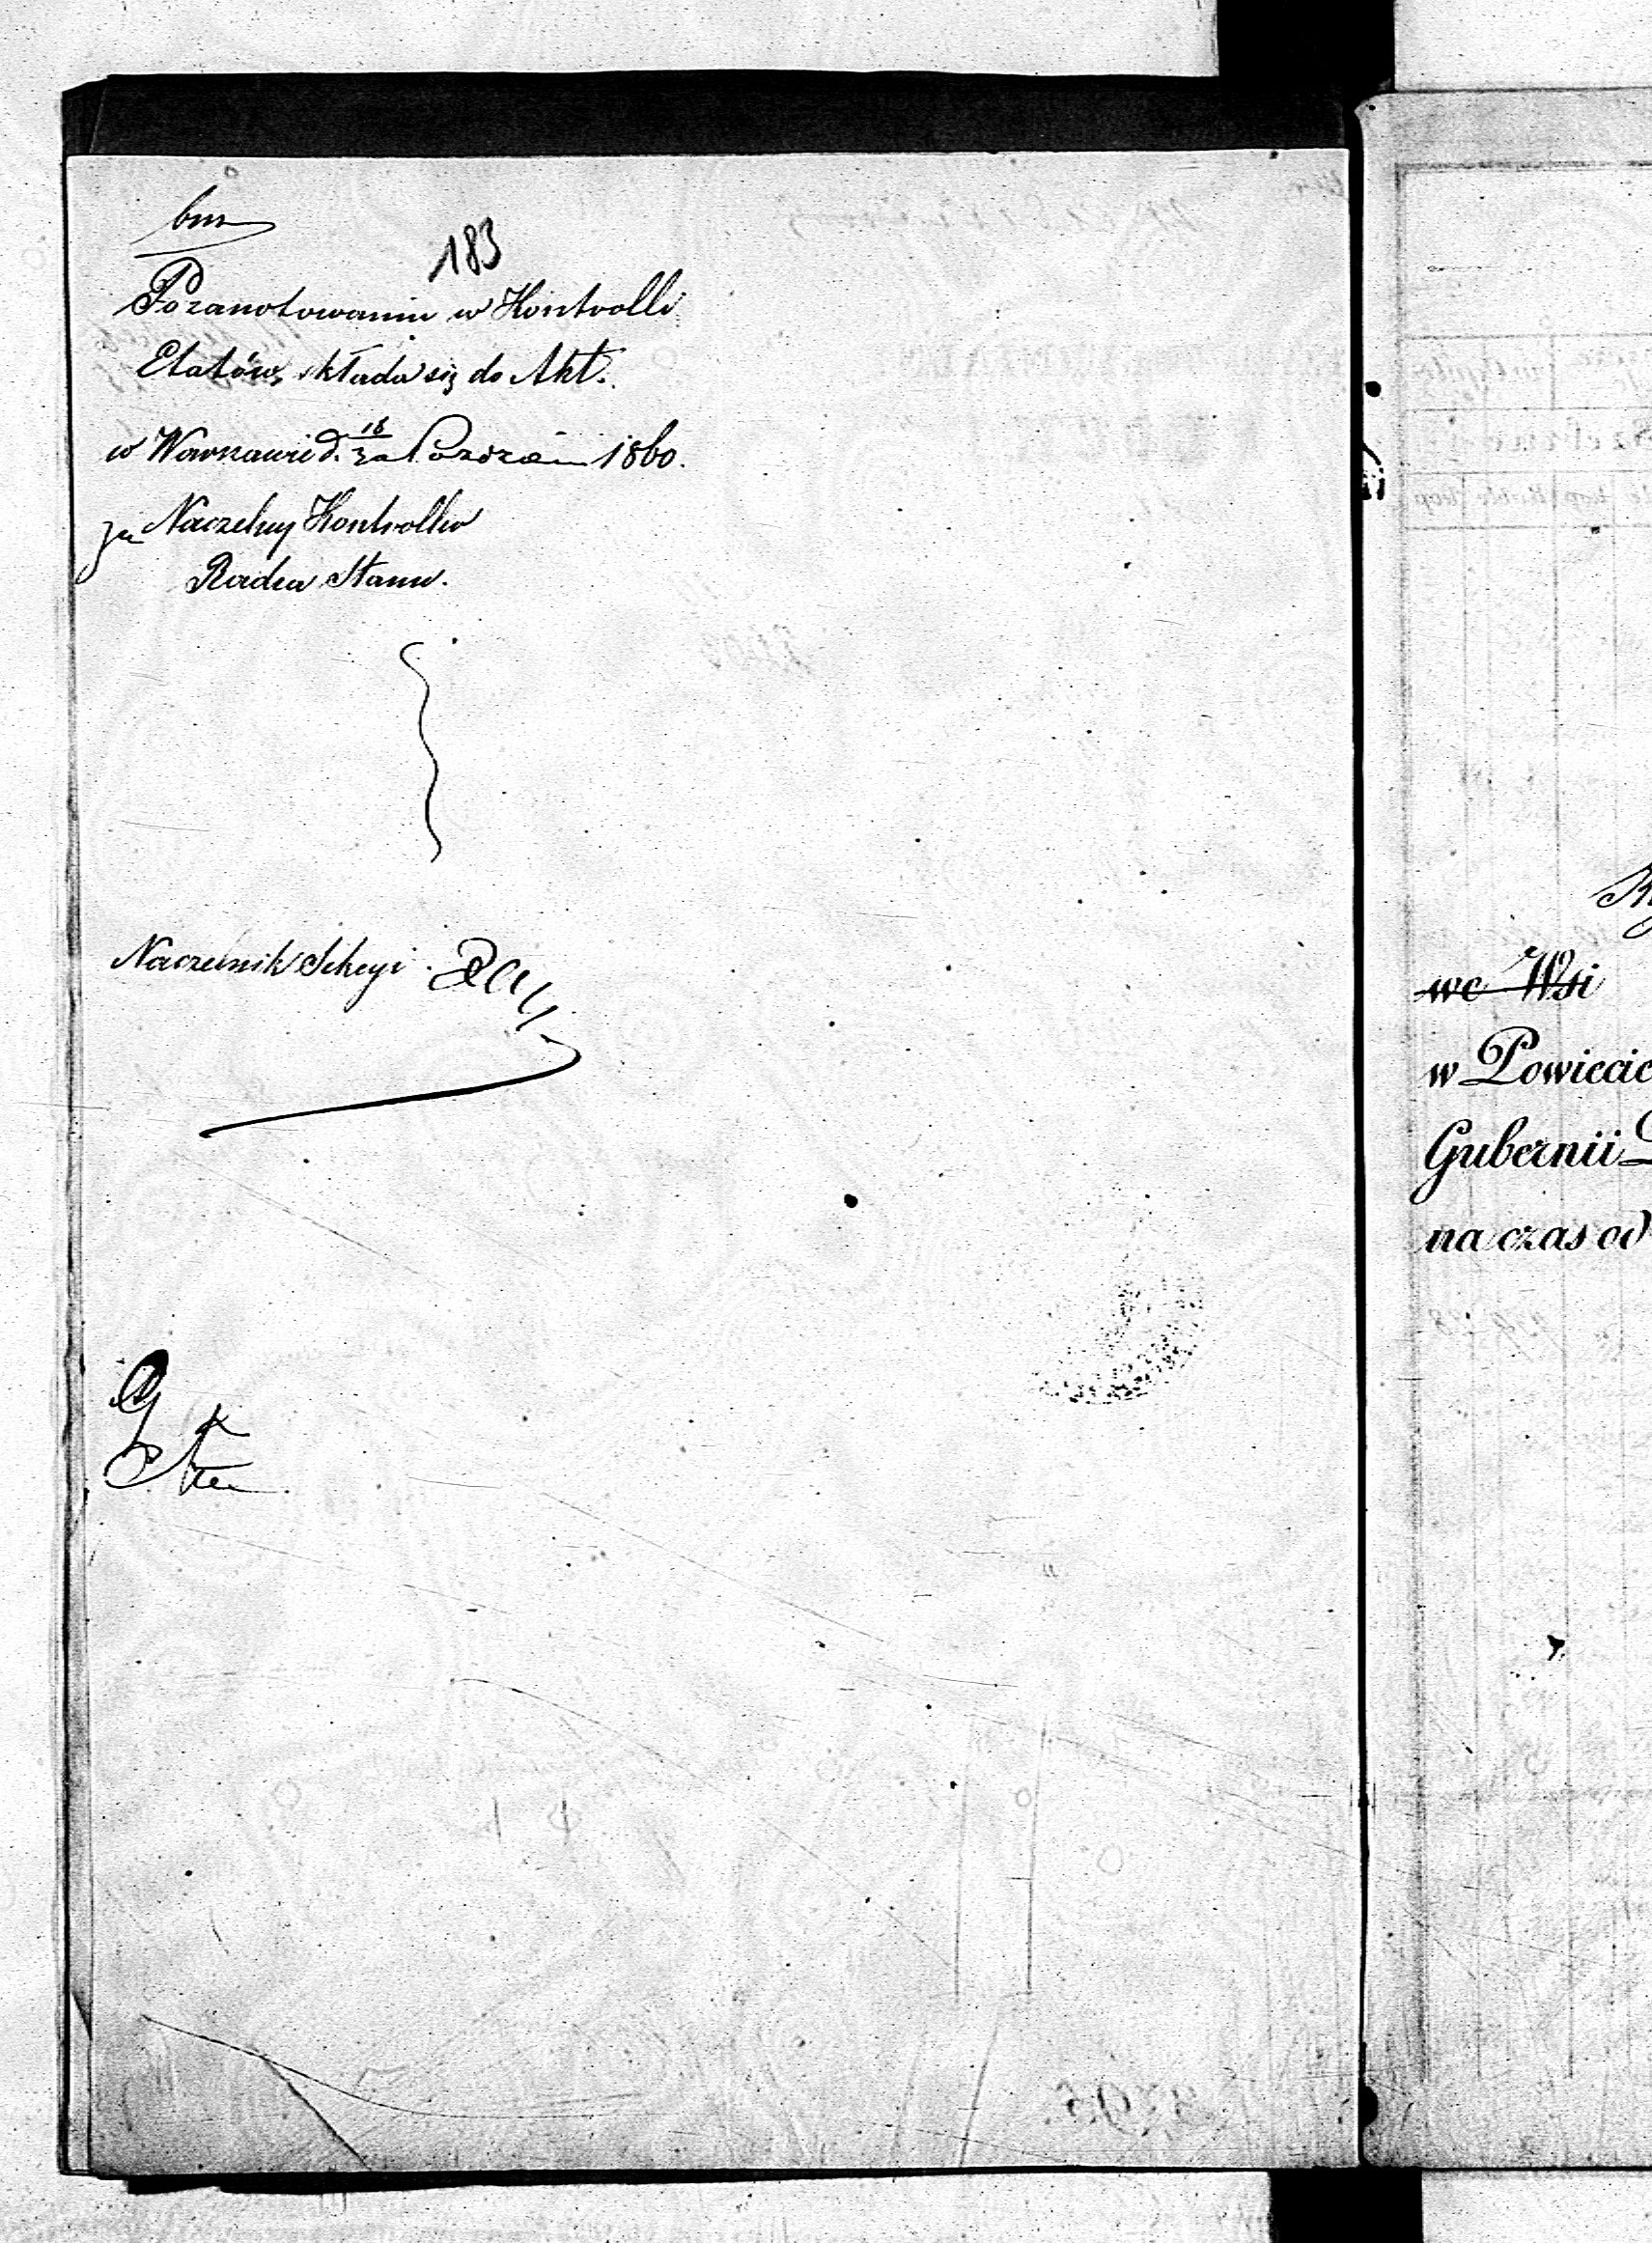 bm
183
Po zanotowaniu w Kontrolli
Etatów, składa się do Akt.
w Warszawie d. 18/30 Paździer. 1860.
za Naczelny Kontroller
Radca Stanu.
Naczelnik Sekcyi
we Wsi
w Powiecie
Gubernii
na czas od